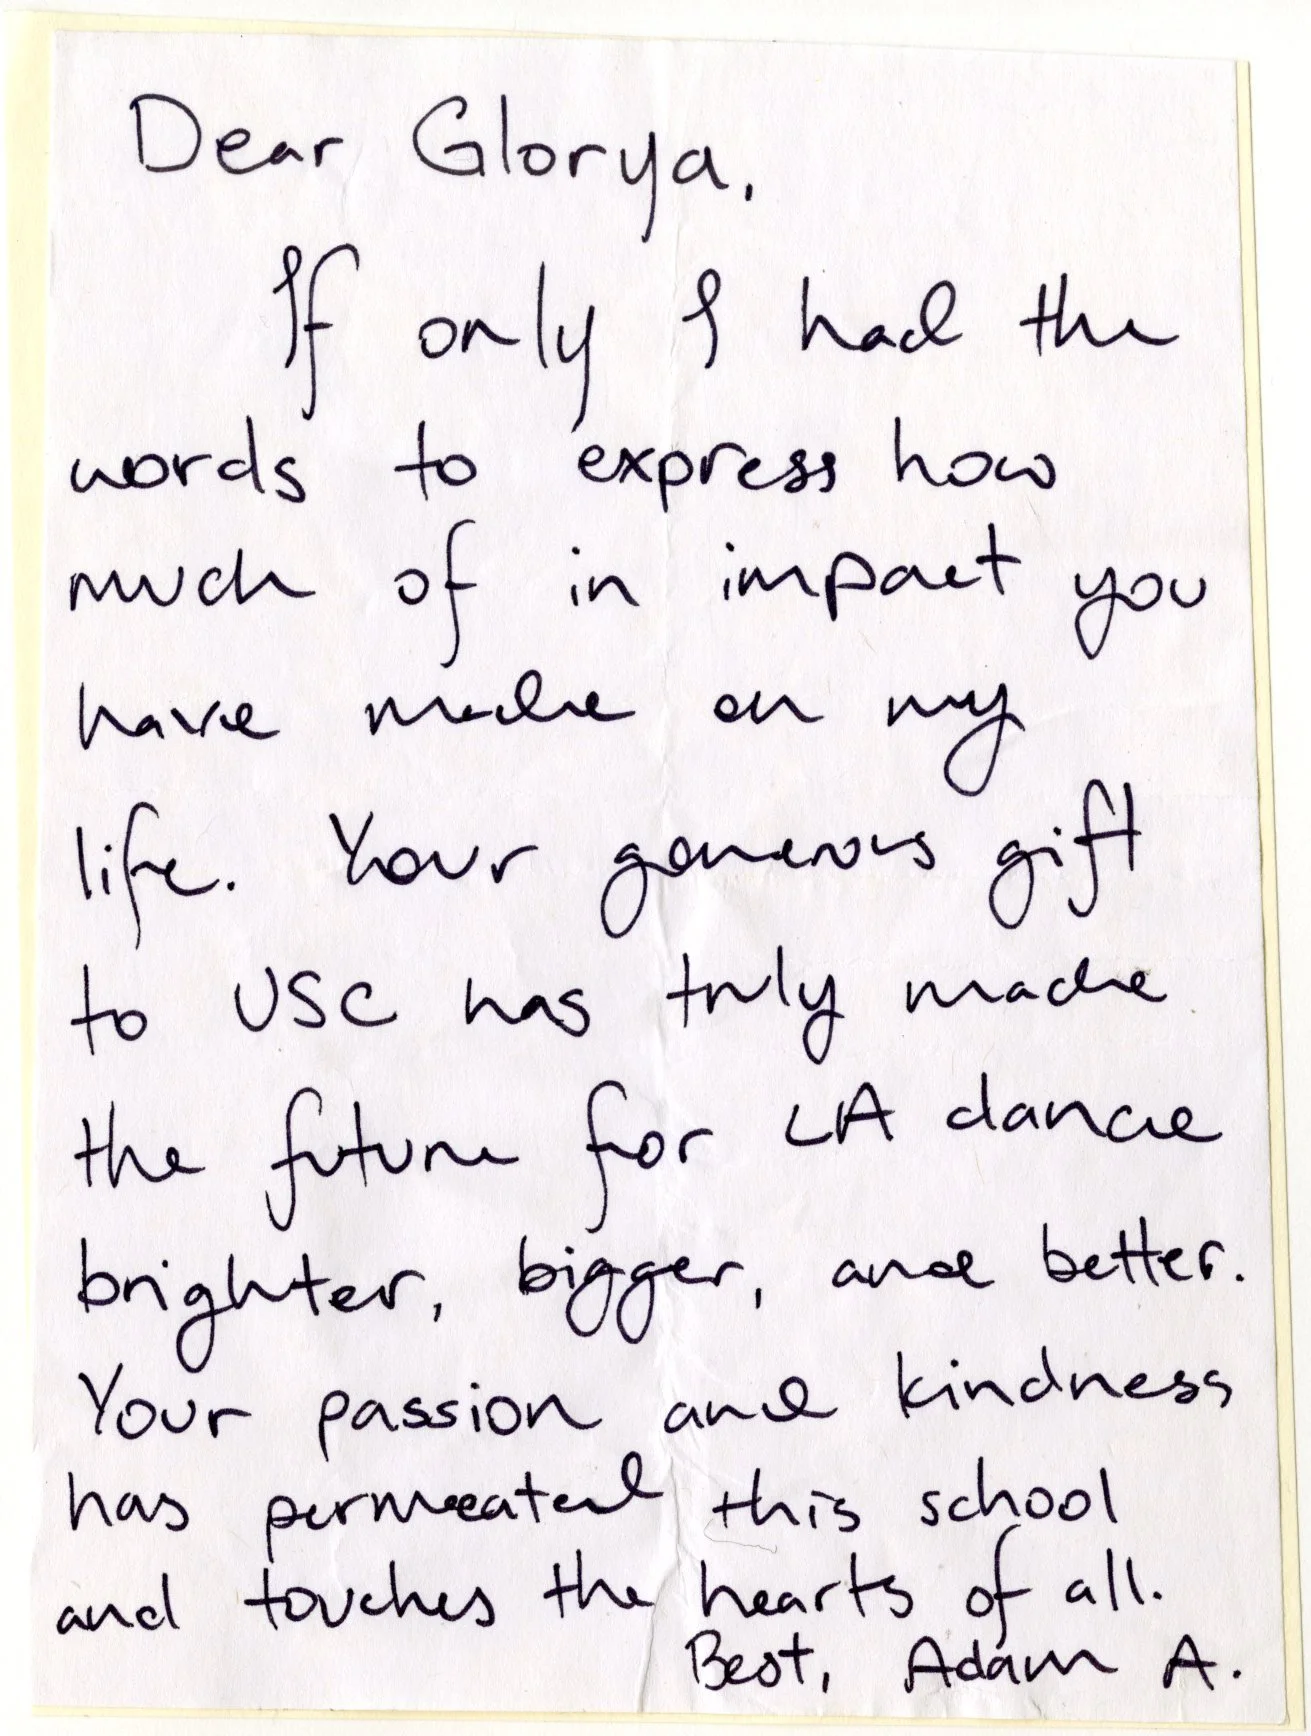 Dear Glorya,
If only I had the
words to express how
much of in impact you
have made on my
life. Your generous gift
to USC has truly made
the future for LA dance
brighter, bigger, and better.
Your passion and kindness
has permeated this school
and touches the hearts of all.
Best, Adam A.